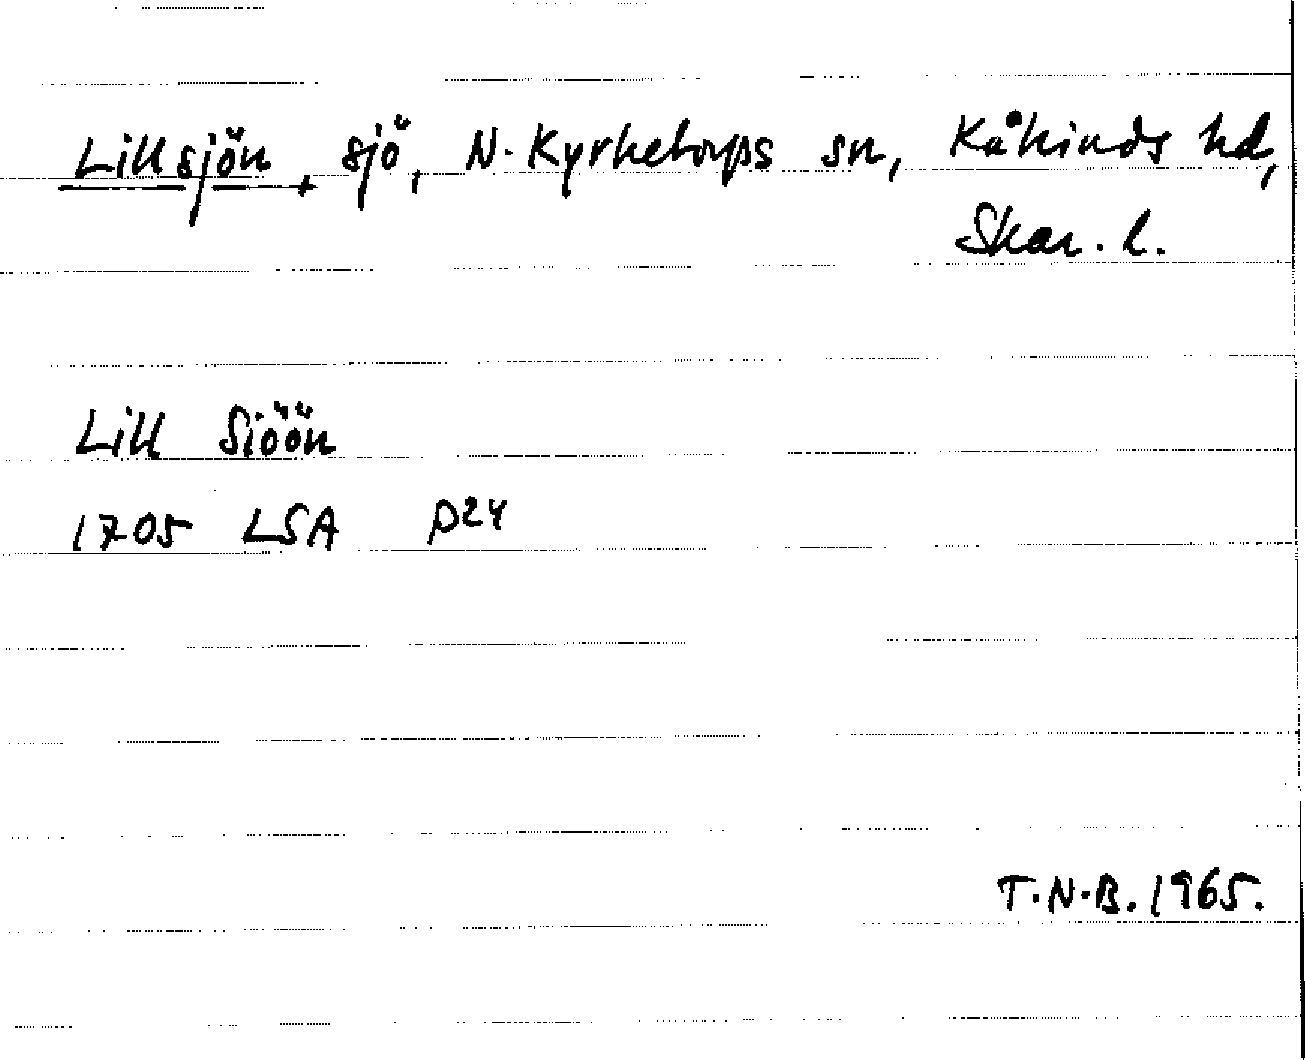 Lillsjön, sjö, N. Kyrketorps sn, Kåkinds hd,
Skar. l.
Lill Siöön
1705 LSA P24
T.N.B. 1965.